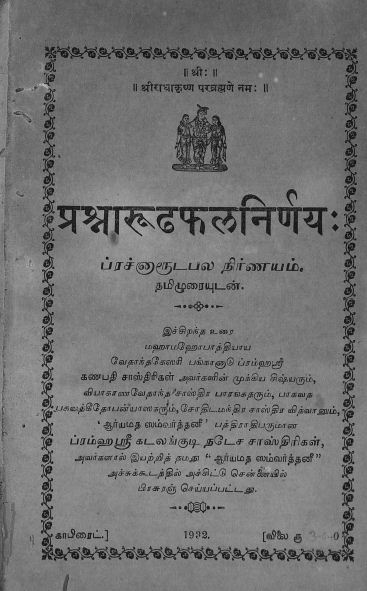 ॥ श्रीः ॥
॥ श्रीराधाकृष्ण परब्रह्मणे नमः ॥
प्रश्नारूढफलनिर्णयः
ப்ரச்னாரூடபல நிர்ணயம்.
தமிழுரையுடன்.
இச்சிறந்த உரை
மஹாமஹோபாத்தியாய
வேதாந்தகேஸரி பங்கானாடு ப்ரம்ஹஸ்ரீ
கணபதி சாஸ்திரிகள் அவர்களின் முக்கிய சிஷ்யரும்,
வியாகரணவேதாந்த சாஸ்திர பாரவதரும், பாகவத
சோதிடமந்திர சாஸ்திர வித்வானும்,
"ஆர்யமத ஸம்வர்த்தனீ" பத்திராதிபருமான
ப்ரம்ஹஸ்ரீ கடலங்குடி நடேச சாஸ்திரிகள்,
அவர்களால் இயற்றித் தமது "ஆர்யமத ஸம்வர்த்தனீ"
அச்சுக்கூடத்தில் அச்சிட்டு சென்னையில்
பிரசுரஞ் செய்யப்பட்டது.
காபிரைட்.] 1932. [விலை ரூ 3-0-0